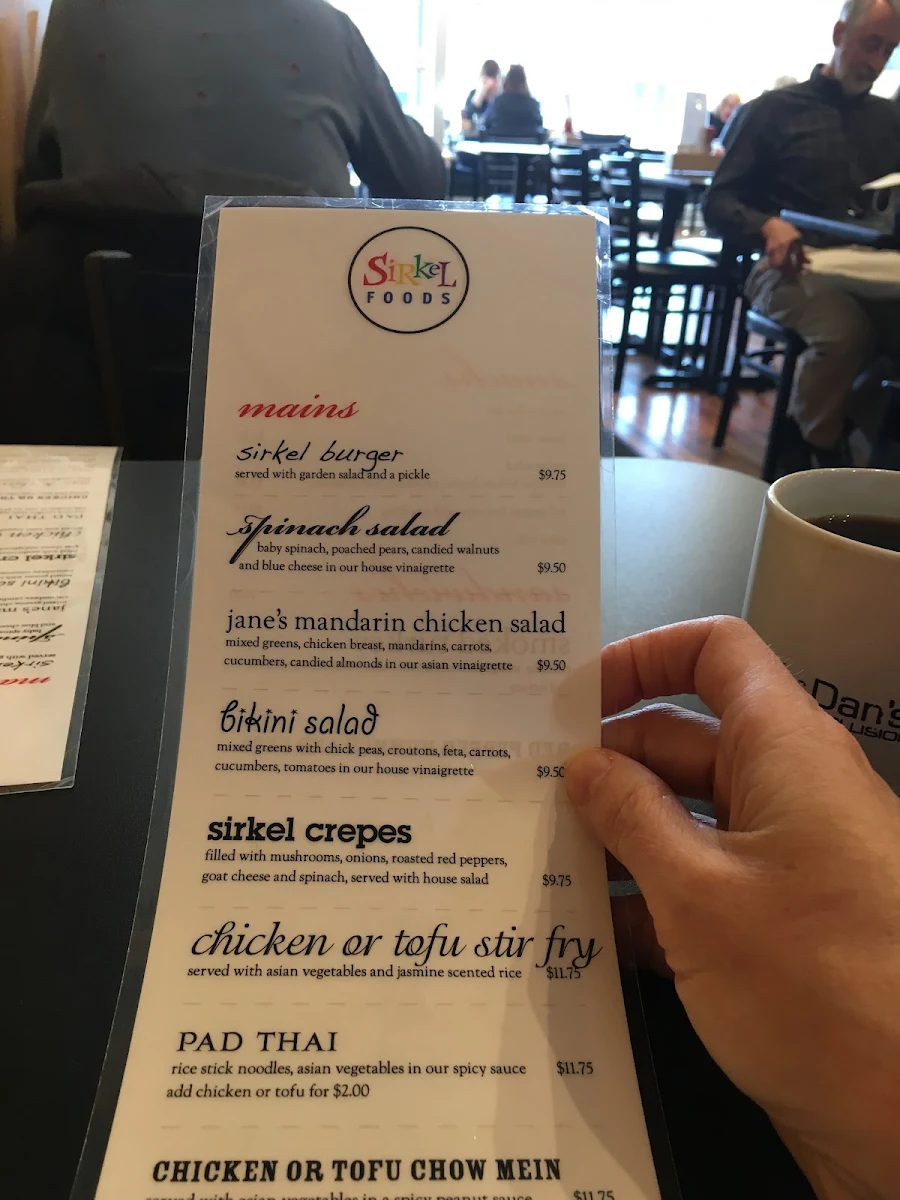 SiRkeL
FOODS
mains
sirkel burger
served with garden salad and a pickle $9.75
spinach salad
baby spinach, poached pears, candied walnuts
and blue cheese in our house vinaigrette $9.50
jane's mandarin chicken salad
mixed greens, chicken breast, mandarins, carrots,
cucumbers, candied almonds in our asian vinaigrette $9.50
bikini salad
mixed greens with chick peas, croutons, feta, carrots,
cucumbers, tomatoes in our house vinaigrette $9.50
sirkel crepes
filled with mushrooms, onions, roasted red peppers,
goat cheese and spinach, served with house salad $9.75
chicken or tofu stir fry
served with asian vegetables and jasmine scented rice $11.75
PAD THAI
rice stick noodles, asian vegetables in our spicy sauce $11.75
add chicken or tofu for $2.00
CHICKEN OR TOFU CHOW MEIN
served with asian vegetables in a spicy peanut sauce $11.75
Dan's
PAD THAI